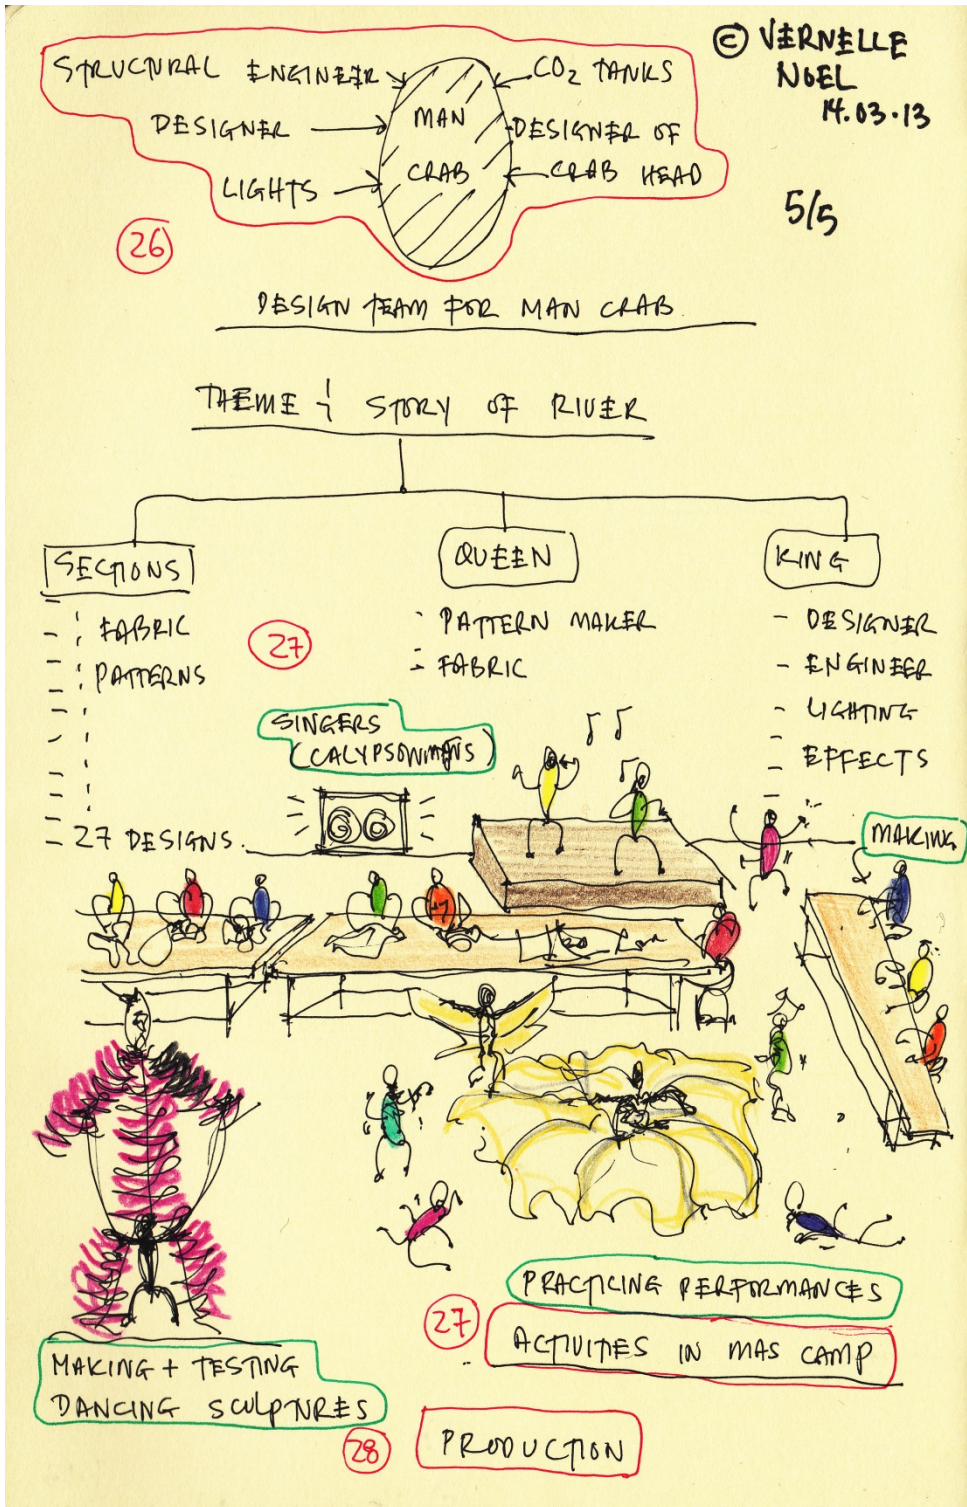 © VERNELLE
NOEL
14.03.13
5/5
STRUCTURAL ENGINEER
CO2 TANKS
DESIGNER
MAN
CRAB
DESIGNER OF
CRAB HEAD
LIGHTS
26
DESIGN TEAM FOR MAN CRAB.
THEME & STORY OF RIVER
SECTIONS
QUEEN
KING
- FABRIC
- PATTERNS
- 27 DESIGNS.
27
- PATTERN MAKER
- FABRIC
- DESIGNER
- ENGINEER
- LIGHTING
- EFFECTS
SINGERS
MAKING
PRACTICING PERFORMANCES
27
ACTIVITIES IN MAS CAMP
MAKING + TESTING
DANCING SCULPTURES
28
PRODUCTION